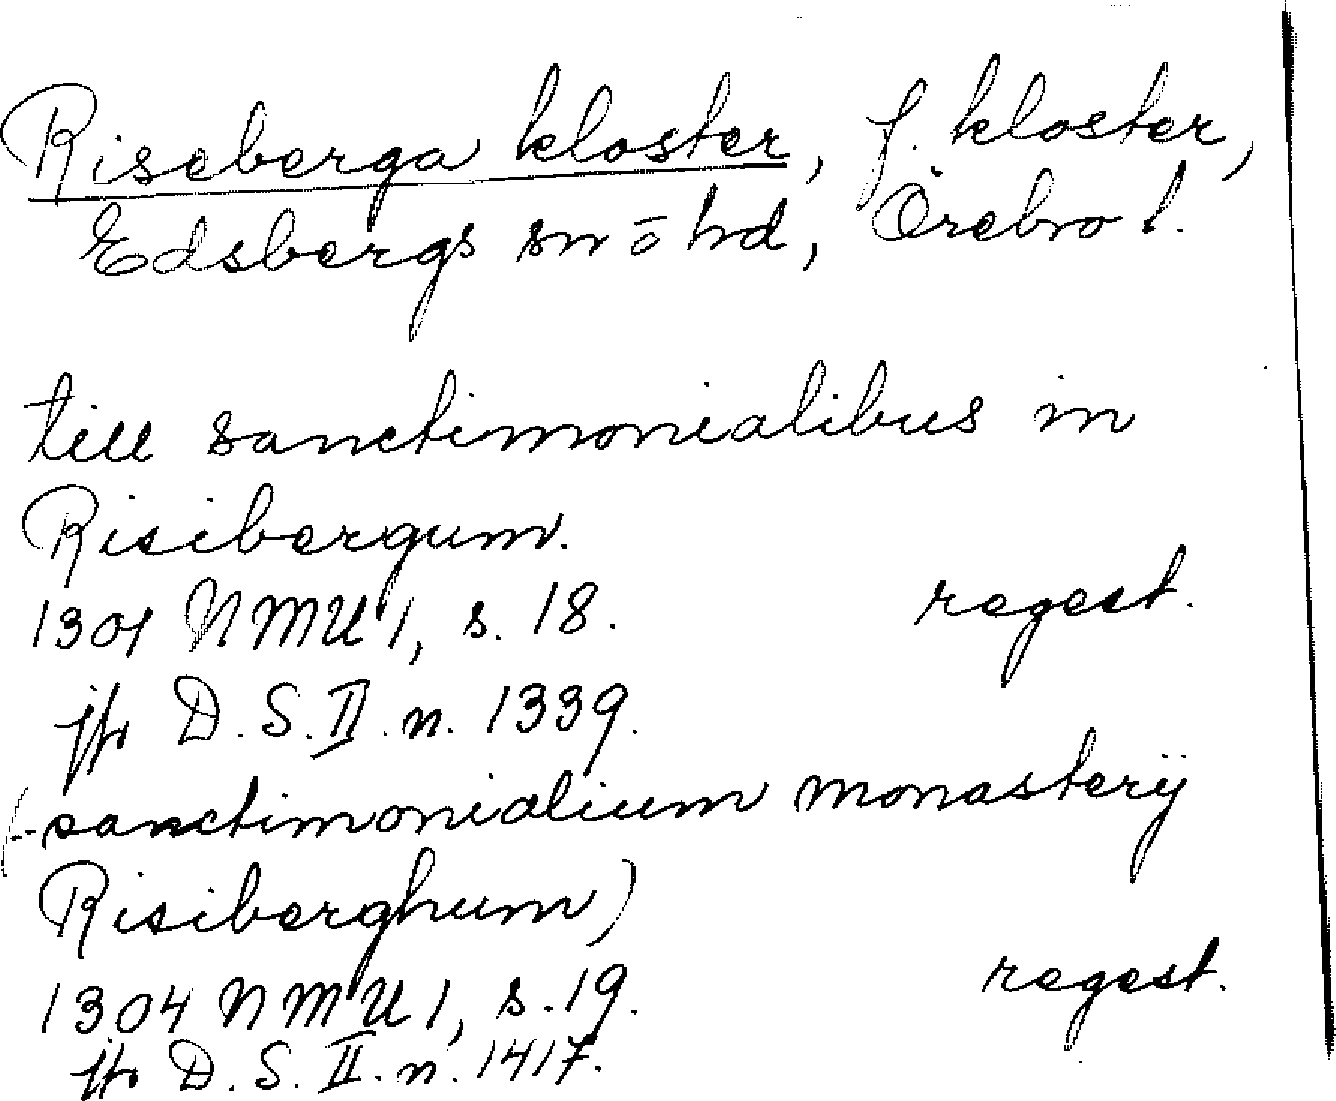 Riseberga kloster, f. kloster,
Edsbergs sn o hd, Örebro l.
till sanctimonialibus in
Risibergum.
1301 NMU 1, s. 18. regest.
jfr D. S. II. n. 1339.
(-- sanctimonialium monasterij
Risiberghum)
1304 NMU 1, s. 19. regest.
jfr D. S. II. n. 1417.